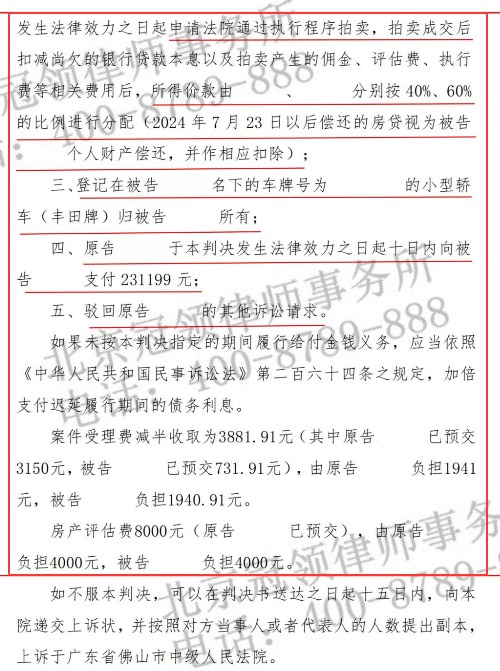 发生法律效力之日起申请法院通过执行程序拍卖，拍卖成交后
扣减尚欠的银行贷款本息以及拍卖产生的佣金、评估费、执行
费等相关费用后，所得价款由 、 分别按40%、60%
的比例进行分配（2024年7月23日以后偿还的房贷视为被告
个人财产偿还，并作相应扣除）；
三、登记在被告 名下的车牌号为 的小型轿
车（丰田牌）归被告 所有；
四、原告 于本判决发生法律效力之日起十日内向被
告 支付231199元；
五、驳回原告 的其他诉讼请求。
如果未按本判决指定的期间履行给付金钱义务，应当依照
《中华人民共和国民事诉讼法》第二百六十四条之规定，加倍
支付迟延履行期间的债务利息。
案件受理费减半收取为3881.91元（其中原告 已预交
3150元，被告 已预交731.91元），由原告 负担1941
元，被告 负担1940.91元。
房产评估费8000元（原告 已预交），由原告
负担4000元，被告 负担4000元。
如不服本判决，可以在判决书送达之日起十五日内，向本
院递交上诉状，并按照对方当事人或者代表人的人数提出副本，
上诉于广东省佛山市中级人民法院。
北京冠领律师事务所
电话：400-8789-888
北京冠领律师事务所
电话：400-8789-888
北京冠领律师事务所
电话：400-8789-888